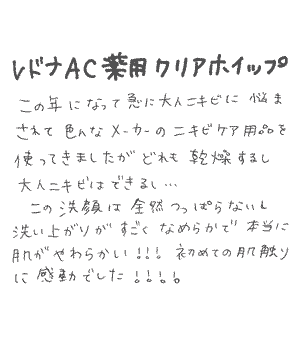 レドナAC薬用クリアホイップ
この年になって急に大人ニキビに悩ま
されて色んなメーカーのニキビケア用品を
使ってきましたがどれも乾燥するし
大人ニキビはできるし…
この洗顔は全然つっぱらないし
洗い上がりがすごくなめらかで本当に
肌がやわらかい!!!初めての肌触り
に感動でした!!!!。